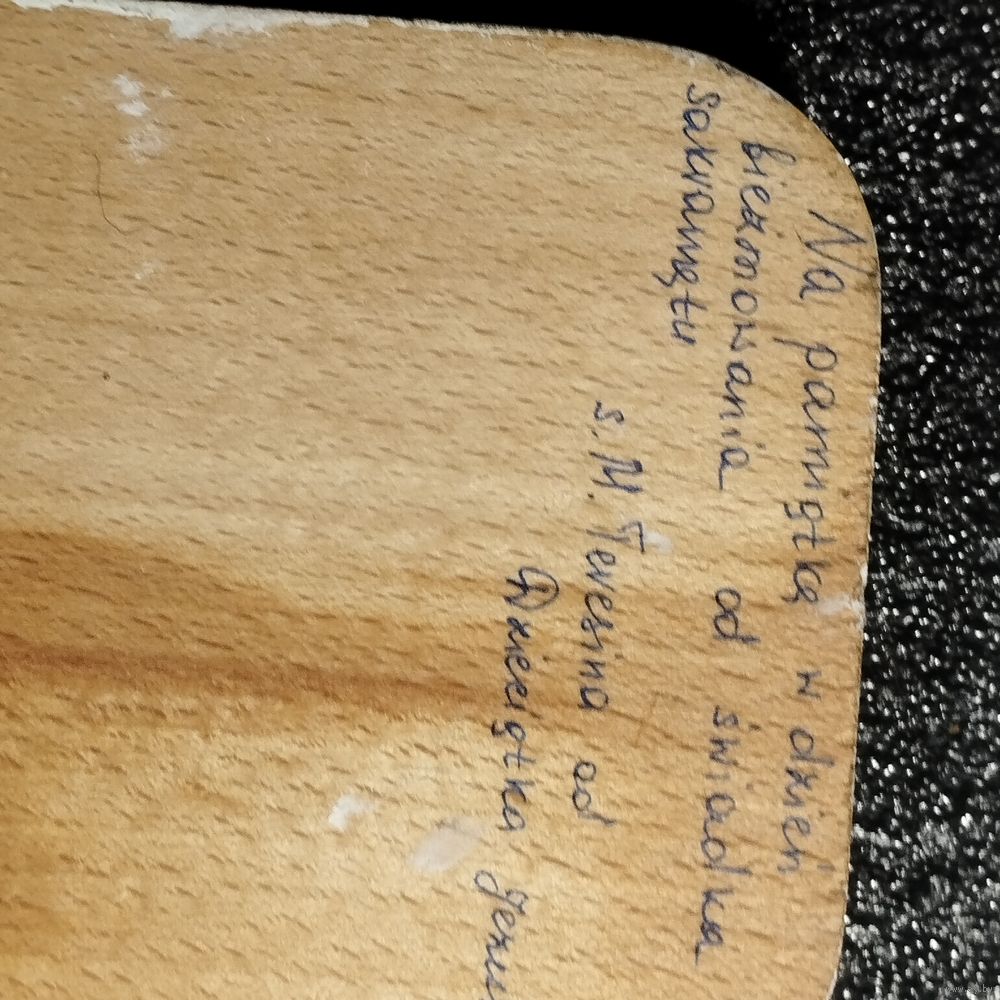 Na pamiątkę w dzień
bierzmowania od świadka
sakramentu
s. M. Teresina od
Dzieciątka Jezus